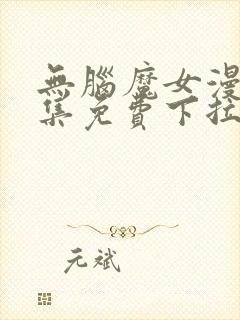 無腦魔女漫
集免費下拉
元斌